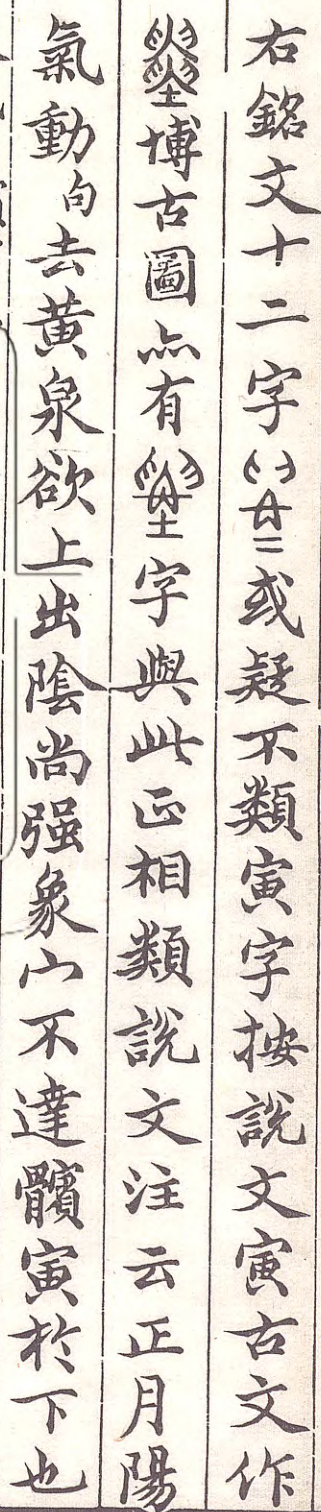 右銘文十二字或疑不類寅字按說文寅古文作
博古圖亦有字與此正相類說文注云正月陽
氣動句去黃泉欲上出陰尚强象宀不達髕寅於下也